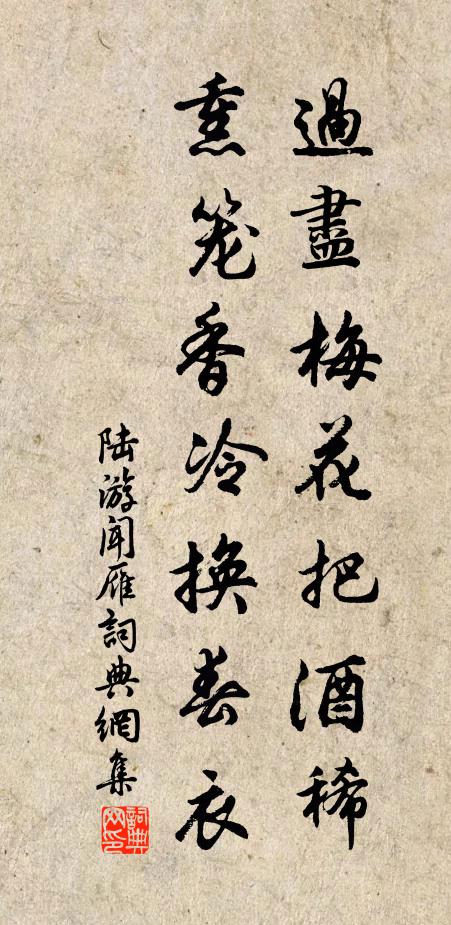 過盡梅花把酒稀
熏笼香冷換春衣
陆游闻雁詞典網集
詞典网印